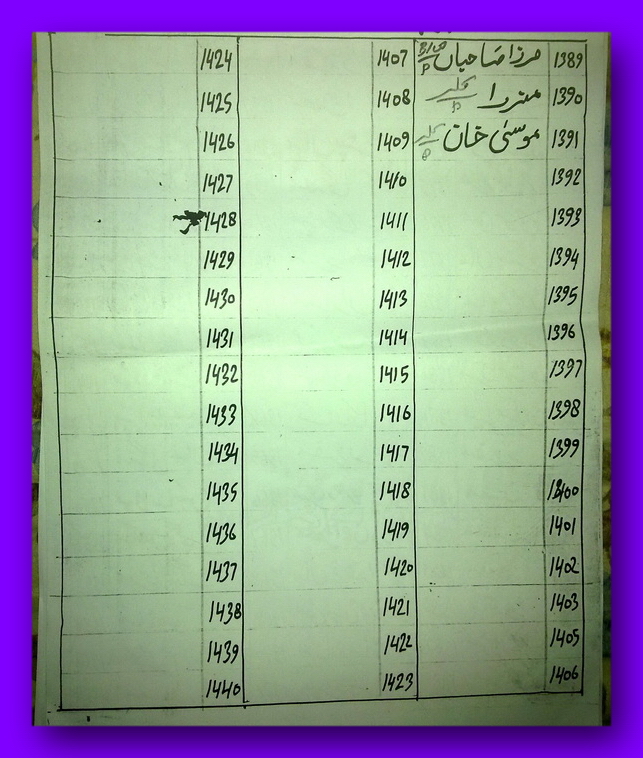 1389 مرزا صاحباں B/W P 1407 1424
1390 مترا کلر P 1408 1425
1391 موسیٰ خان کلر P 1409 1426
1392 1410 1427
1393 1411 1428
1394 1412 1429
1395 1413 1430
1396 1414 1431
1397 1415 1432
1398 1416 1433
1399 1417 1434
1400 1418 1435
1401 1419 1436
1402 1420 1437
1403 1421 1438
1405 1422 1439
1406 1423 1440